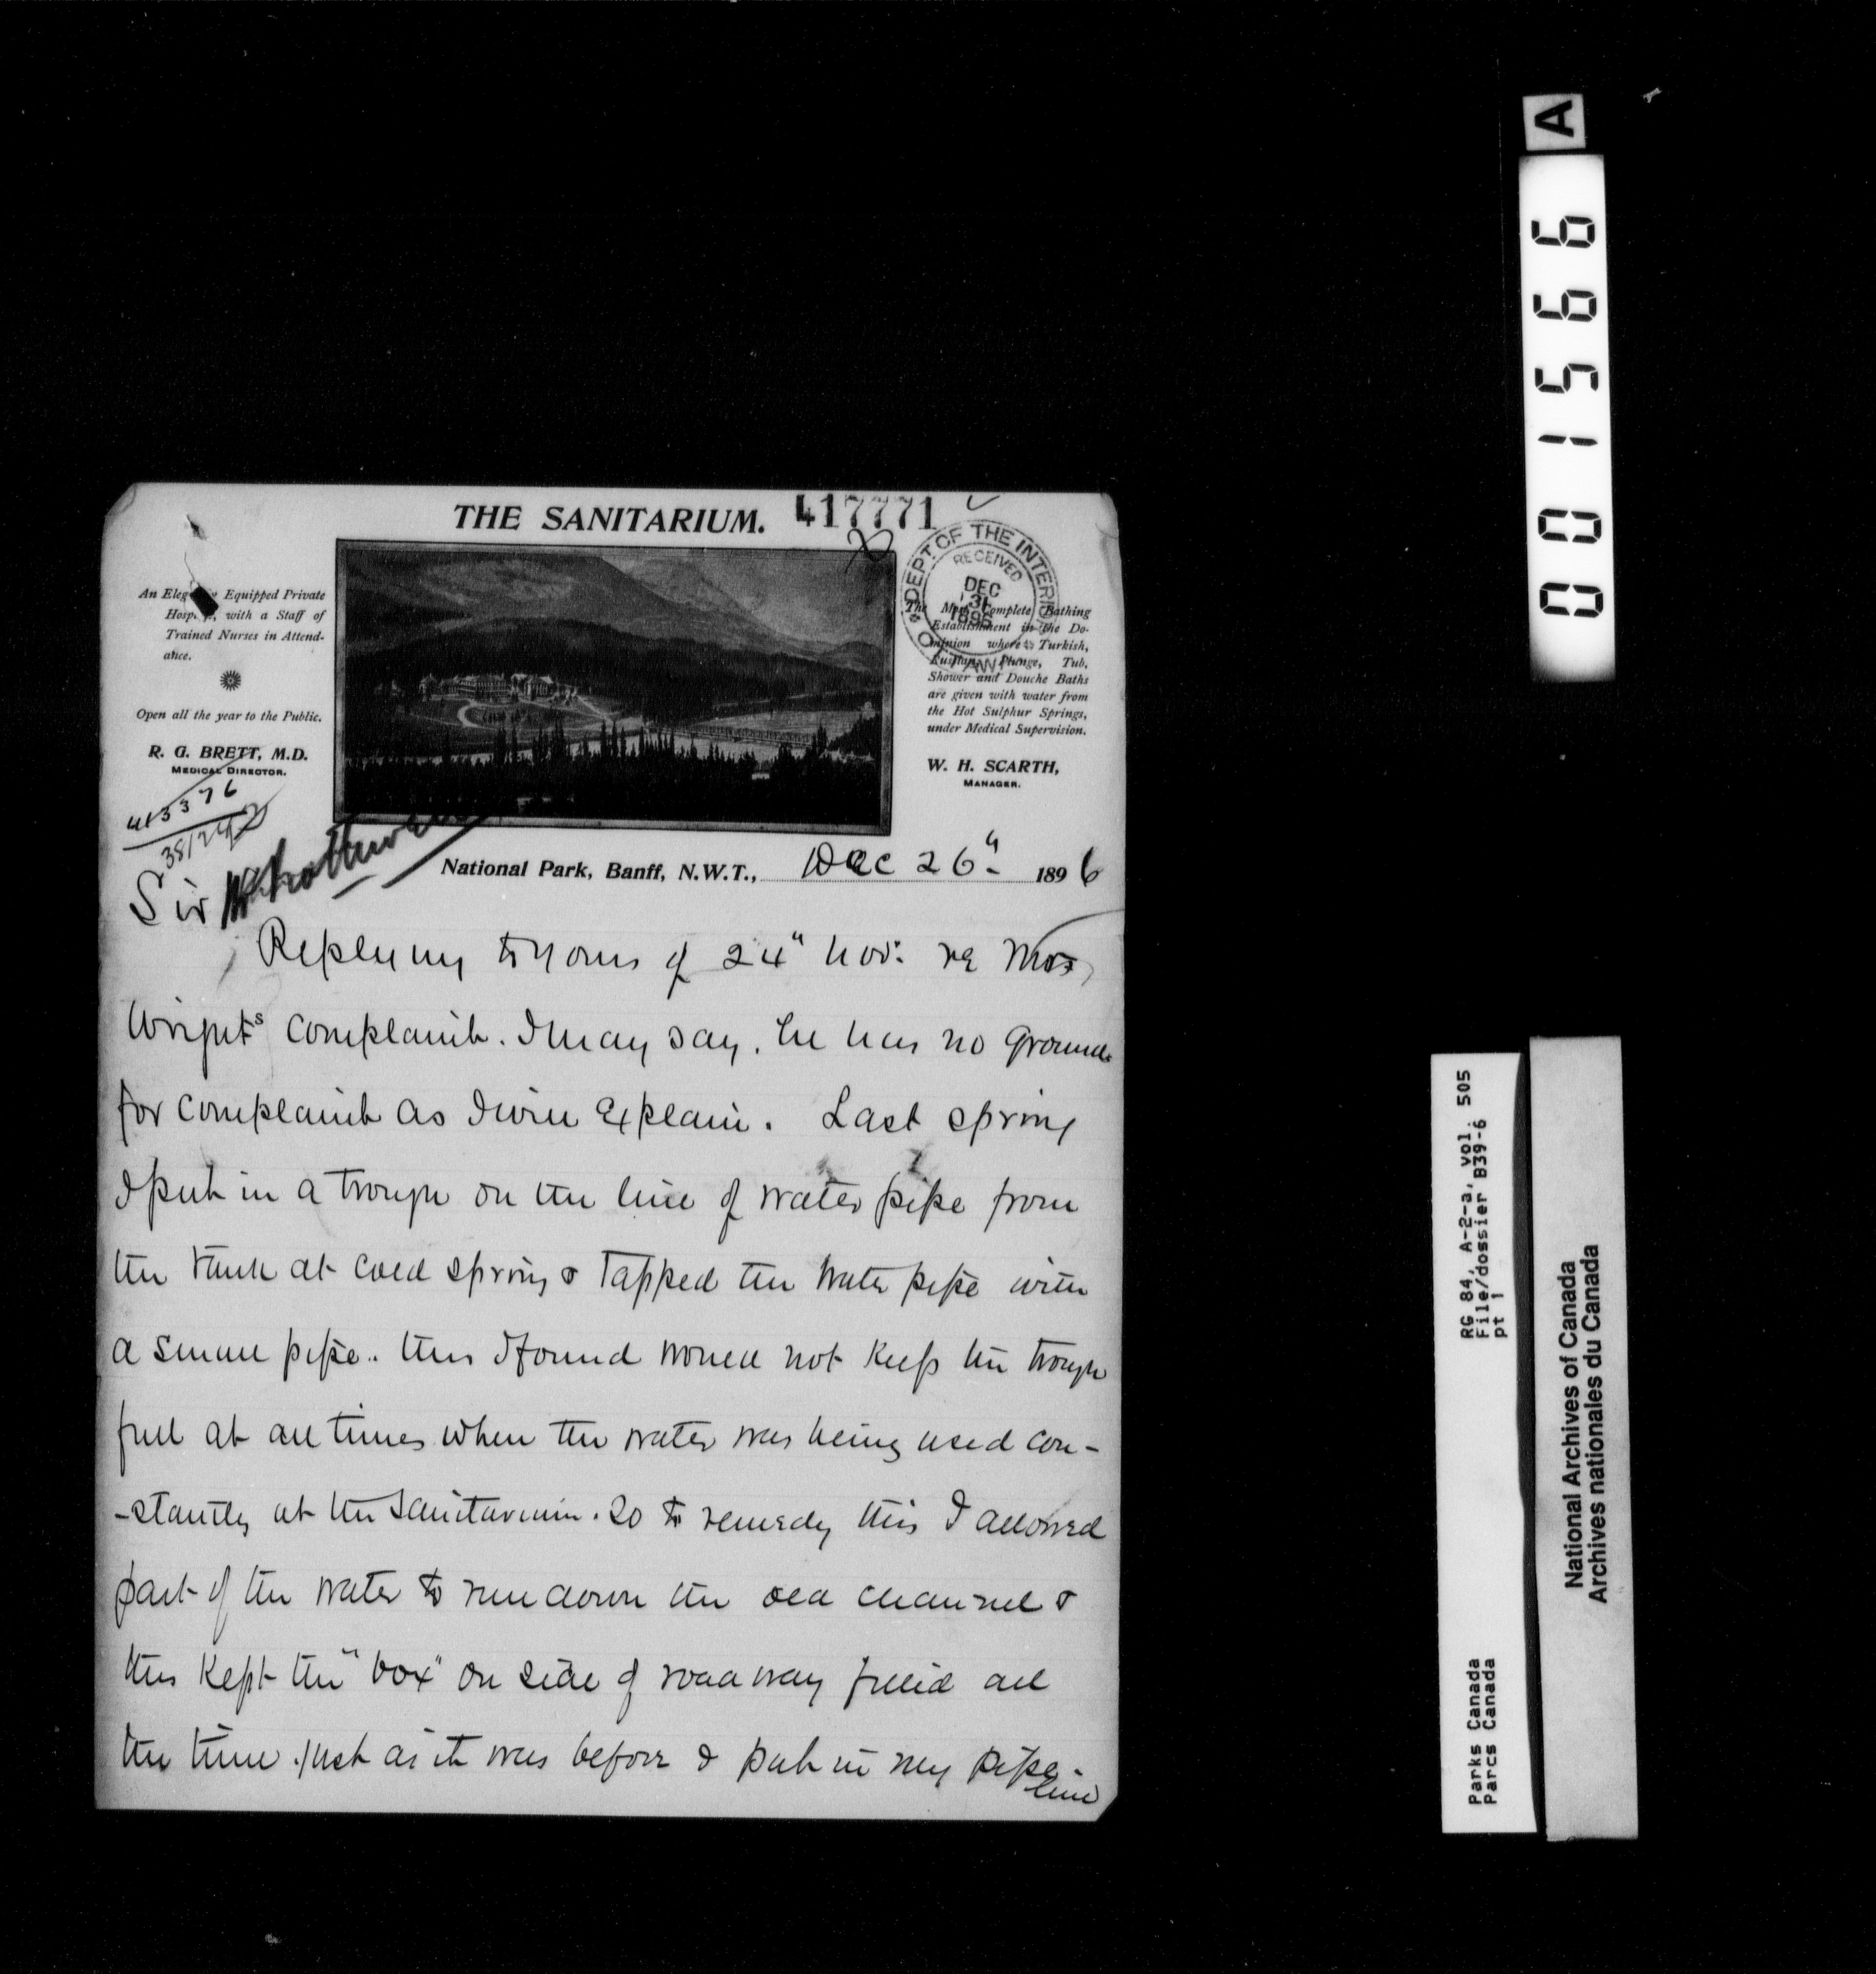 THE SANITARIUM.
417771
DEPT OF THE INTERIOR
RECEIVED
DEC
31
1896
An Elegantly Equipped Private
Hospital, with a Staff of
Trained Nurses in Attend-
ance.
Open all the year to the Public.
R. G. BRETT, M.D.
MEDICAL DIRECTOR.
The Most Complete Bathing
Establishment in the Do-
minion where Turkish,
Russian, Plunge, Tub,
Shower and Douche Baths
are given with water from
the Hot Sulphur Springs,
under Medical Supervision.
W. H. SCARTH,
MANAGER.
413376
National Park, Banff, N.W.T., Dec 26" 1896
Sir
Replying to yours of 24" Nov: re
Wright's complaint. I may say, he has no grounds
for complaint as I will Explain. Last spring
I put in a trough on the line of water pipe from
the tank at cold spring & Tapped the water pipe with
a small pipe. this I found would not keep the trough
full at all times when the water was being used con-
-stantly at the Sanitarium. So to remedy this I allowed
part of the water to run down the old channel &
this kept the "box" on side of roadway filled all
the time just as it was before I put in my pipe
line
A
001566
RG 84, A-2-a, vol. 505
File/dossier B39-6
pt 1
Parks Canada
Parcs Canada
National Archives of Canada
Archives nationales du Canada